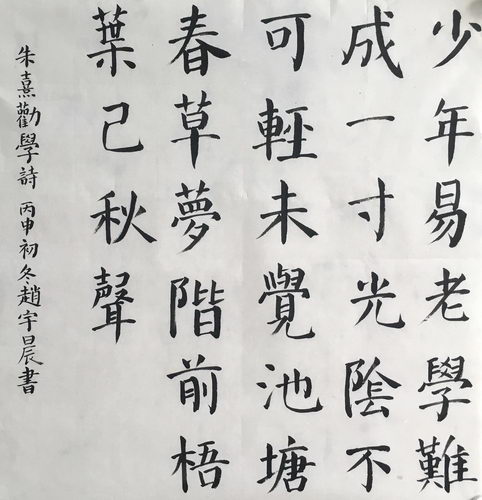 少年易老學難
成一寸光陰不
可輕未覺池塘
春草夢階前梧
葉已秋聲
朱熹勸學詩 丙申初冬趙宇晨書